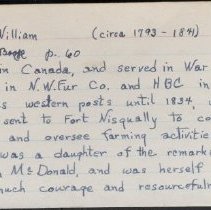 William (circa 1793 - 1841)
p. 60
in Canada, and served in War
in N.W. Fur Co. and HBC in
western posts until 1834,
sent to Fort Nisqually to co
and oversee farming activities
was a daughter of the remark
McDonald, and was herself
much courage and resourceful